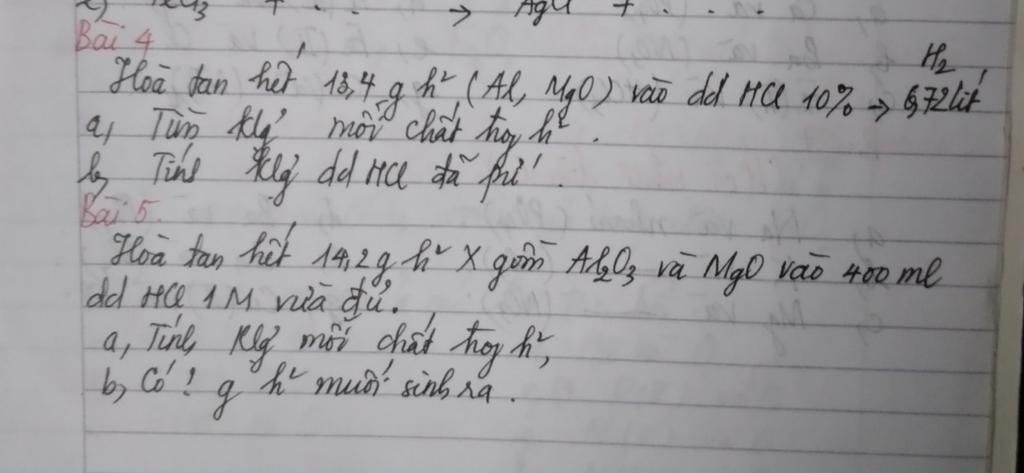 → AgCl + . . . .
Bài 4
H₂
Hoà tan hết 13,4 g h² (Al, MgO) vào dd HCl 10% → 6,72 lít
a, Tìm klg mỗi chất trog h².
b, Tính klg dd HCl đã pứ.
Bài 5.
Hoà tan hết 14,2 g h² X gồm Al₂O₃ và MgO vào 400 ml
dd HCl 1M vừa đủ.
a, Tính klg mỗi chất trog h²,
b, Có ? g h² muối sinh ra.